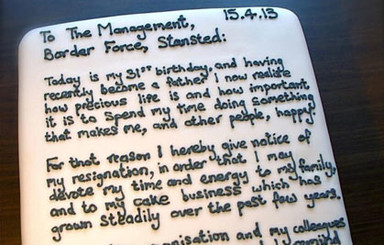 15.4.13
To The Management,
Border Force, Stansted:
Today is my 31st birthday, and having
recently become a father I now realise
how precious life is and how important
it is to spend my time doing something
that makes me, and other people, happy.
For that reason I hereby give notice of
my resignation, in order that I may
devote my time and energy to my family,
and to my cake business which has
grown steadily over the past few years.
organisation and my colleagues